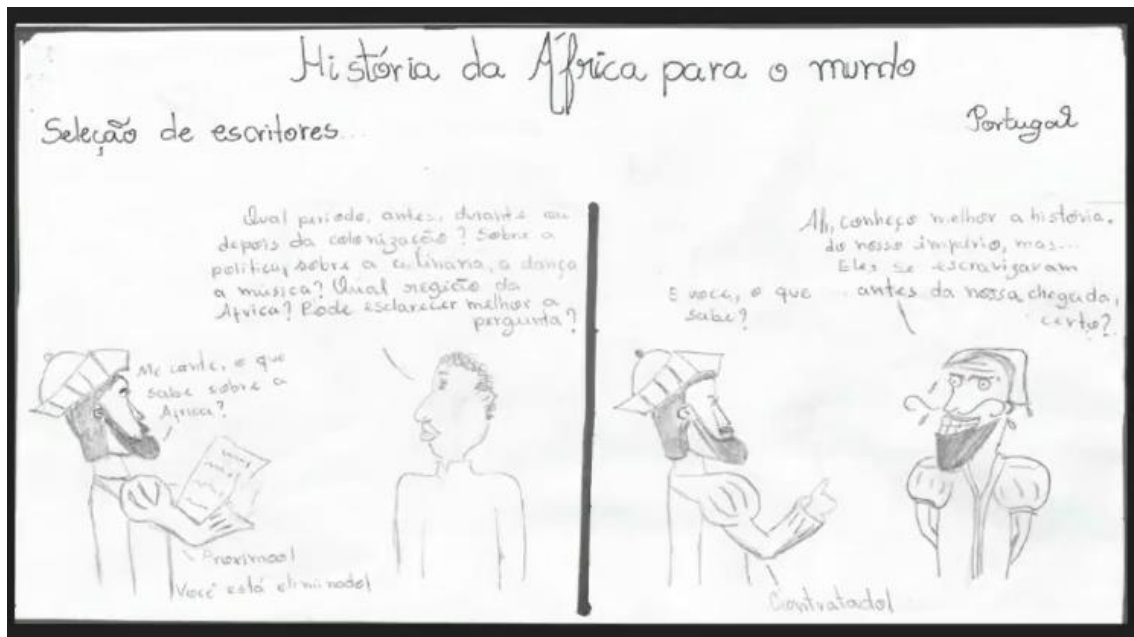 História da África para o mundo
Seleção de escritores...
Portugal
Me conte, o que
sabe sobre a
Africa?
Qual periodo, antes, durante ou
depois da colonização? Sobre a
politica, sobre a culinaria, a dança
a música? Qual região da
Africa? Pode esclarecer melhor a
pergunta?
Proximo!
Você está eliminado!
E voce, o que
sabe?
Ah, conheço melhor a história.
do nosso império, mas...
Eles se escravizavam
antes da nossa chegada,
certo?
Contratado!